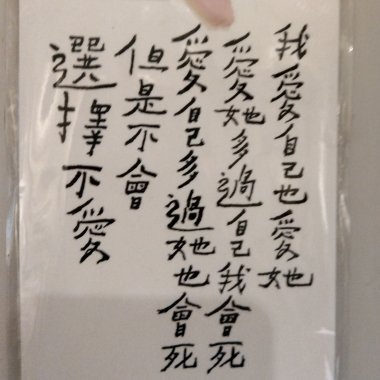 我愛自己也愛她
愛她多過自己我會死
愛自己多過她也會死
但是不會
選擇不愛